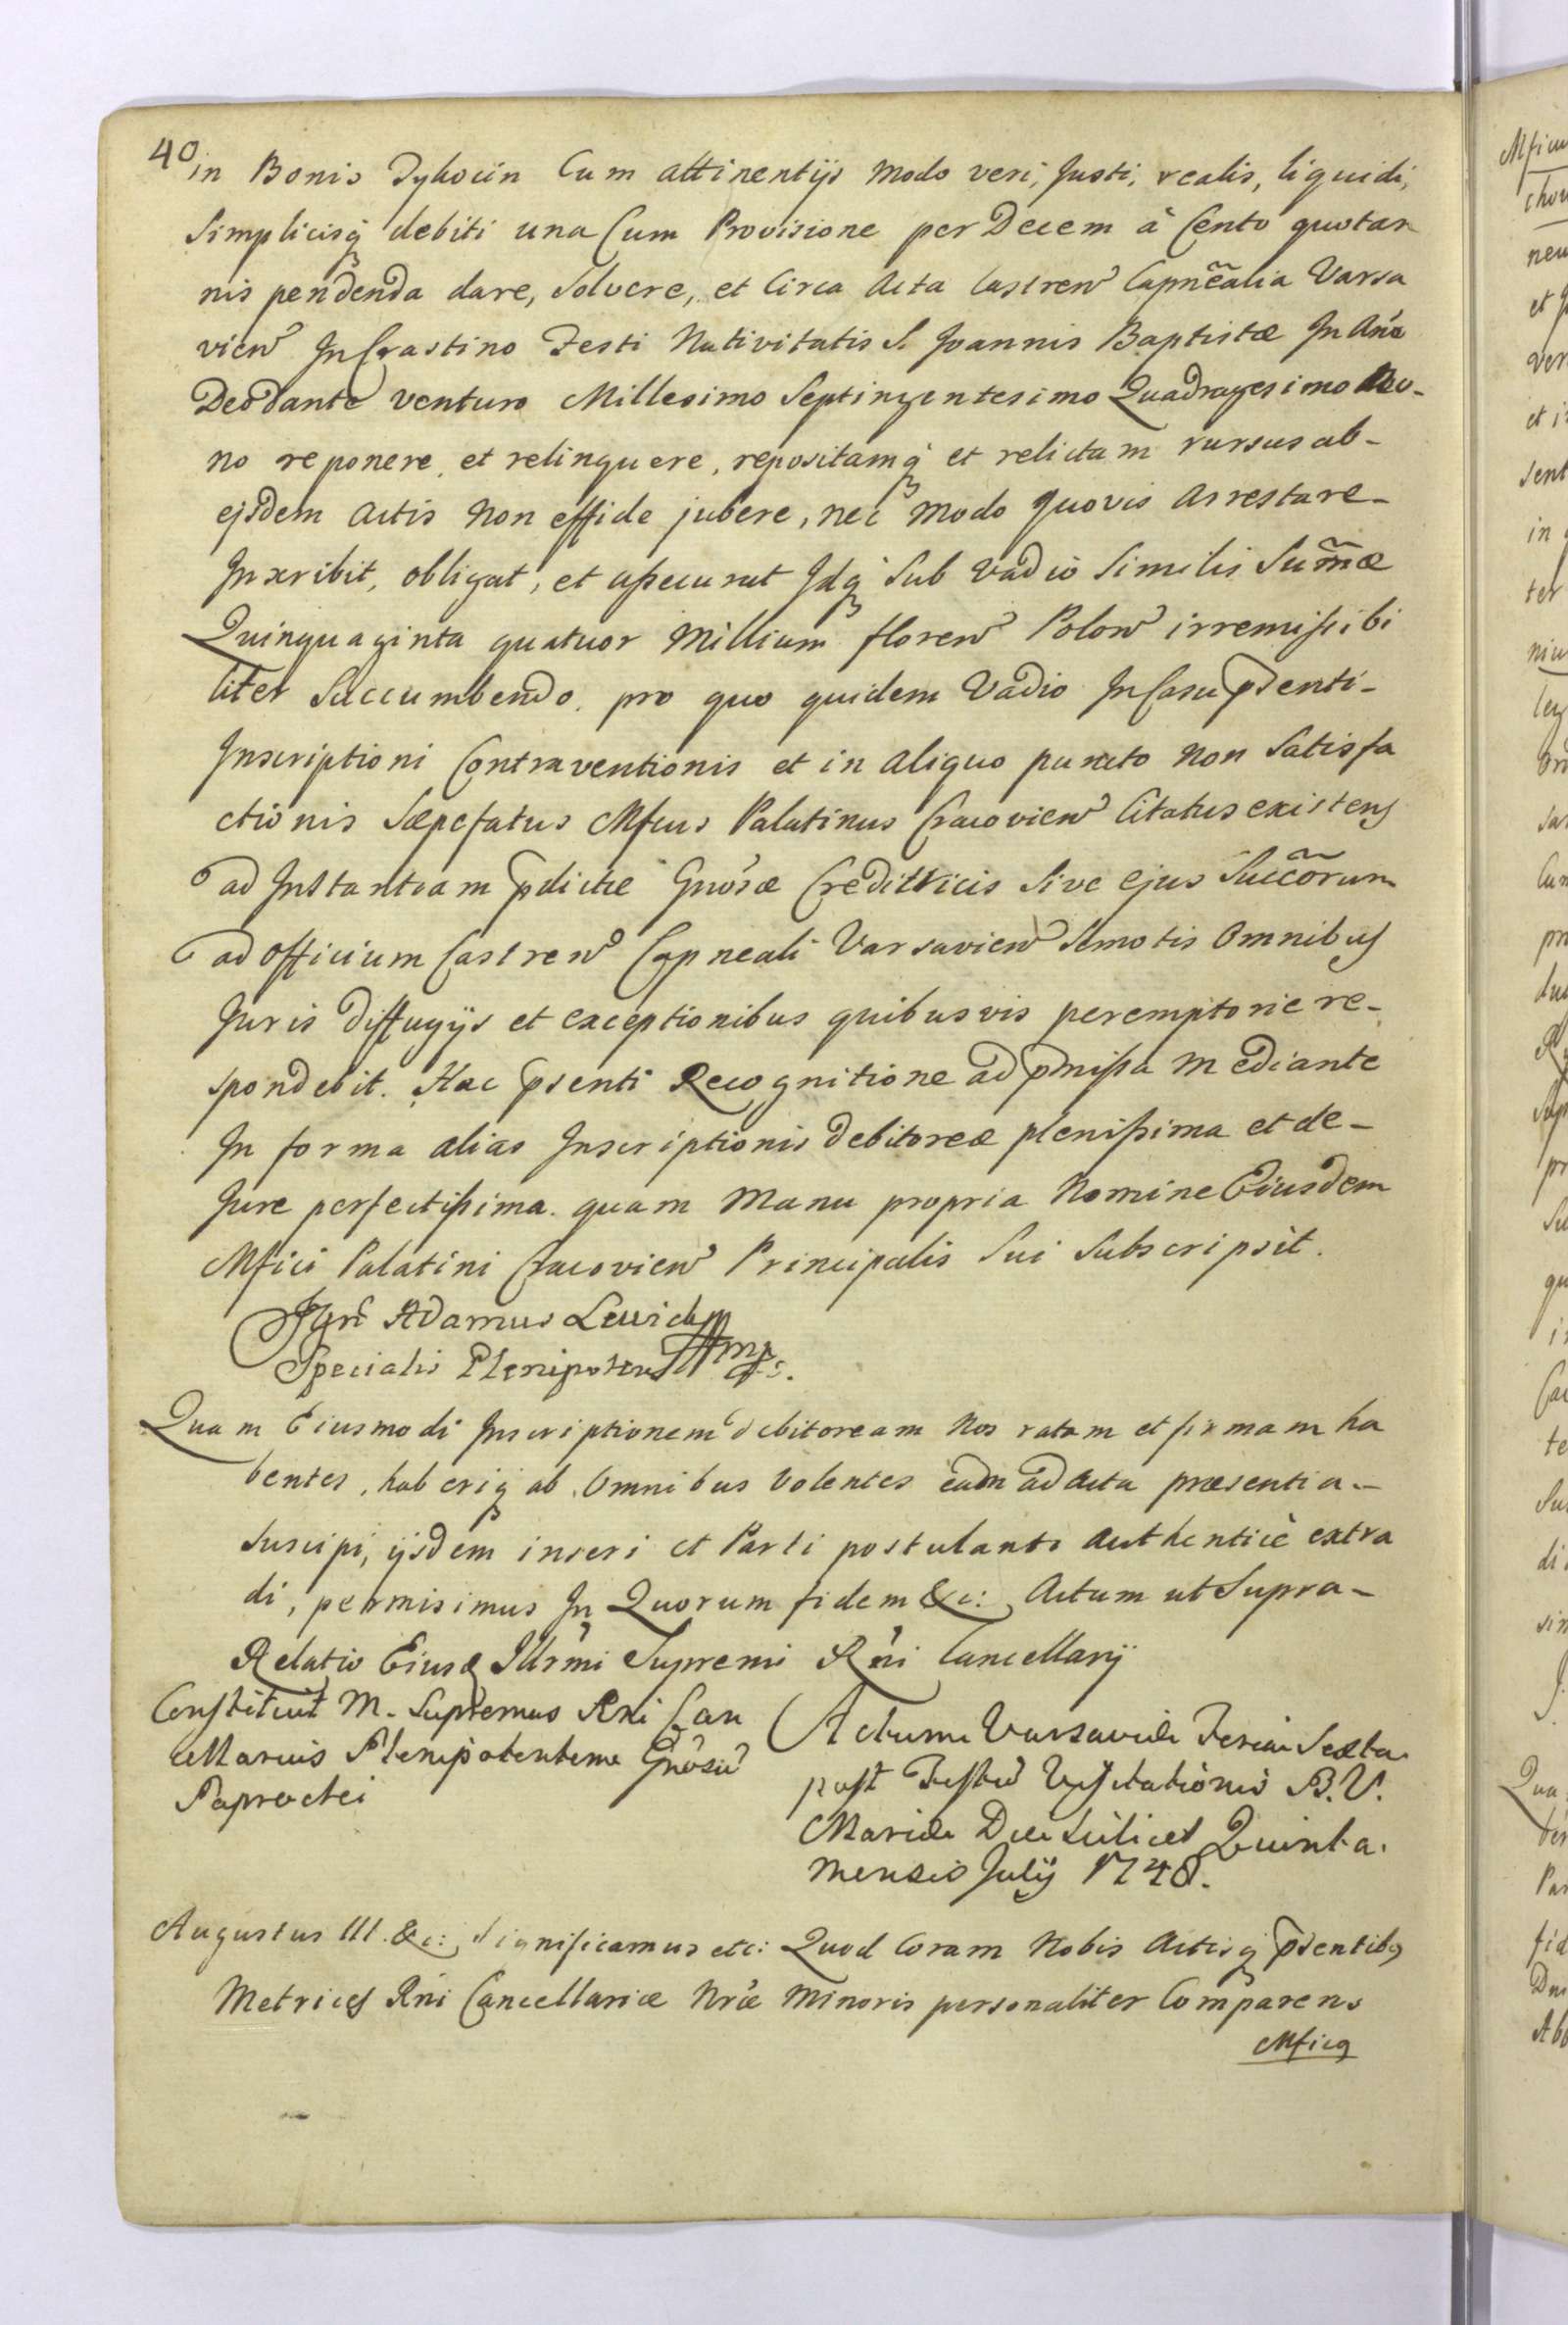 40
in Bonis Tykocin Cum attinentijs modo veri, Justi, realis, liquidi,
Simplicisq debiti una Cum Provisione per Decem à Cento quotan
nis pendenda dare, Solvere, et Circa Acta Castren Capnealia Varsa
vien In Crastino Festi Nativitatis S. Joannis Baptistæ In Ano
Deo dante venturo Millesimo Septingentesimo Quadragesimo No-
no reponere et relinquere, repositamq et relictam rursus ab-
ejsdem Actis Non effide jubere, nec modo quovis Arrestare-
Inscribit, obligat, et assecurat Idq Sub Vadio Similis Sumæ
Quinquaginta quatuor Millium floren Polon irremissibi
liter Succumbendo. pro quo quidem Vadio In Casu psenti-
Inscriptioni Contraventionis et in aliquo puncto Non Satisfa
ctionis Sæpefatus Mfcus Palatinus Cracovien Citatus existens
ad Instantiam pdictæ Gnosæ Creditricis Sive ejus Succorum
ad officium Castren Capneali Varsavien Semotis Omnibus
Juris Diffugijs et exceptionibus quibusvis peremptorie re-
spondebit. Hac psenti Recognitione ad pmissa mediante
In forma alias Inscriptionis debitoreæ plenissima et de-
Jure perfectissima. quam Manu propria Nomine Eiusdem
Mfici Palatini Cracovien Principalis Sui Subscripsit.
Adamus
Specialis Plenipotens mp.
Quam Eiusmodi Inscriptionem debitoream Nos ratam et firmam ha
bentes, haberiq ab Omnibus Volentes eadm ad Acta præsentia-
Suscipi, ijsdem inseri et Parti postulanti Authenticè extra
di, permisimus In Quorum fidem &c: Actum ut Supra-
Relatio Eiusd Illrmi Supremi Rni Cancellarij
Constituit M. Supremus Rni Can
cellarius Plenipotentem Gnosu
Paprocki
Actum Varsaviæ Feria Sexta
post Festu Visitationis B.V.
Mariæ Die Scilicet Quinta.
Mensis Julij 1748.
Augustus III. &c: Significamus etc: Quod Coram Nobis Actisq psentibus
Metrices Rni Cancellariæ Nræ Minoris personaliter Comparens
Mficq